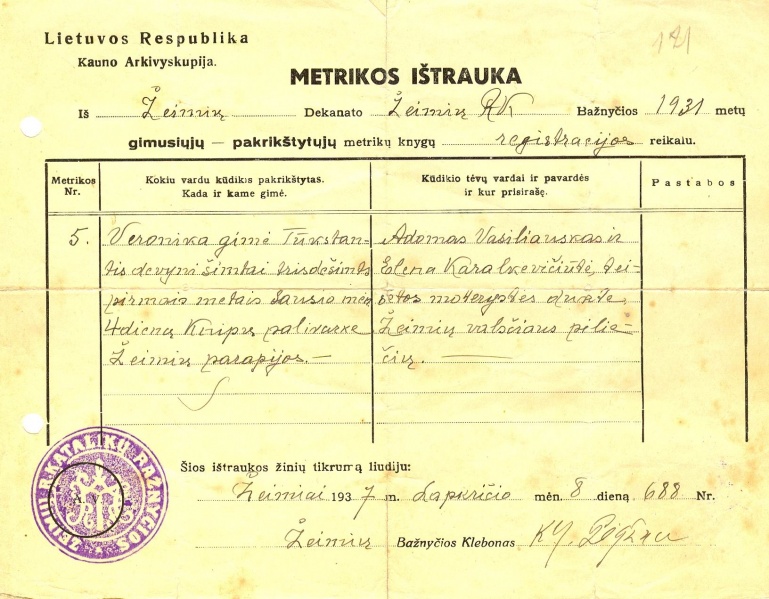 Lietuvos Respublika
Kauno Arkivyskupija.
121
METRIKOS IŠTRAUKA
Iš Žeimių Dekanato Žeimių RK Bažnyčios 1931 metų
gimusiųjų — pakrikštytųjų metrikų knygų registracijos reikalu.
Metrikos Nr.
Kokiu vardu kūdikis pakrikštytas.
Kada ir kame gimė.
Kūdikio tėvų vardai ir pavardės
ir kur prisirašę.
Pastabos
5.
Veronika gimė Tūkstan-
tis devyni šimtai trisdešimts
pirmais metais Sausio mėn
4 dieną palivarke
Žeimių parapijos. —
Adomas Vasiliauskas ir
Elena Karalkevičiūtė, tei-
sėtos moterystės duktė,
Žeimių valsčiaus pilie-
čių. —
Šios ištraukos žinių tikrumą liudiju:
Žeimiai 1937 m. Lapkričio mėn. 8 dieną 688 Nr.
Žeimių Bažnyčios Klebonas
ŽEIMIŲ R. KATALIKŲ BAŽNYČIOS
A. V.